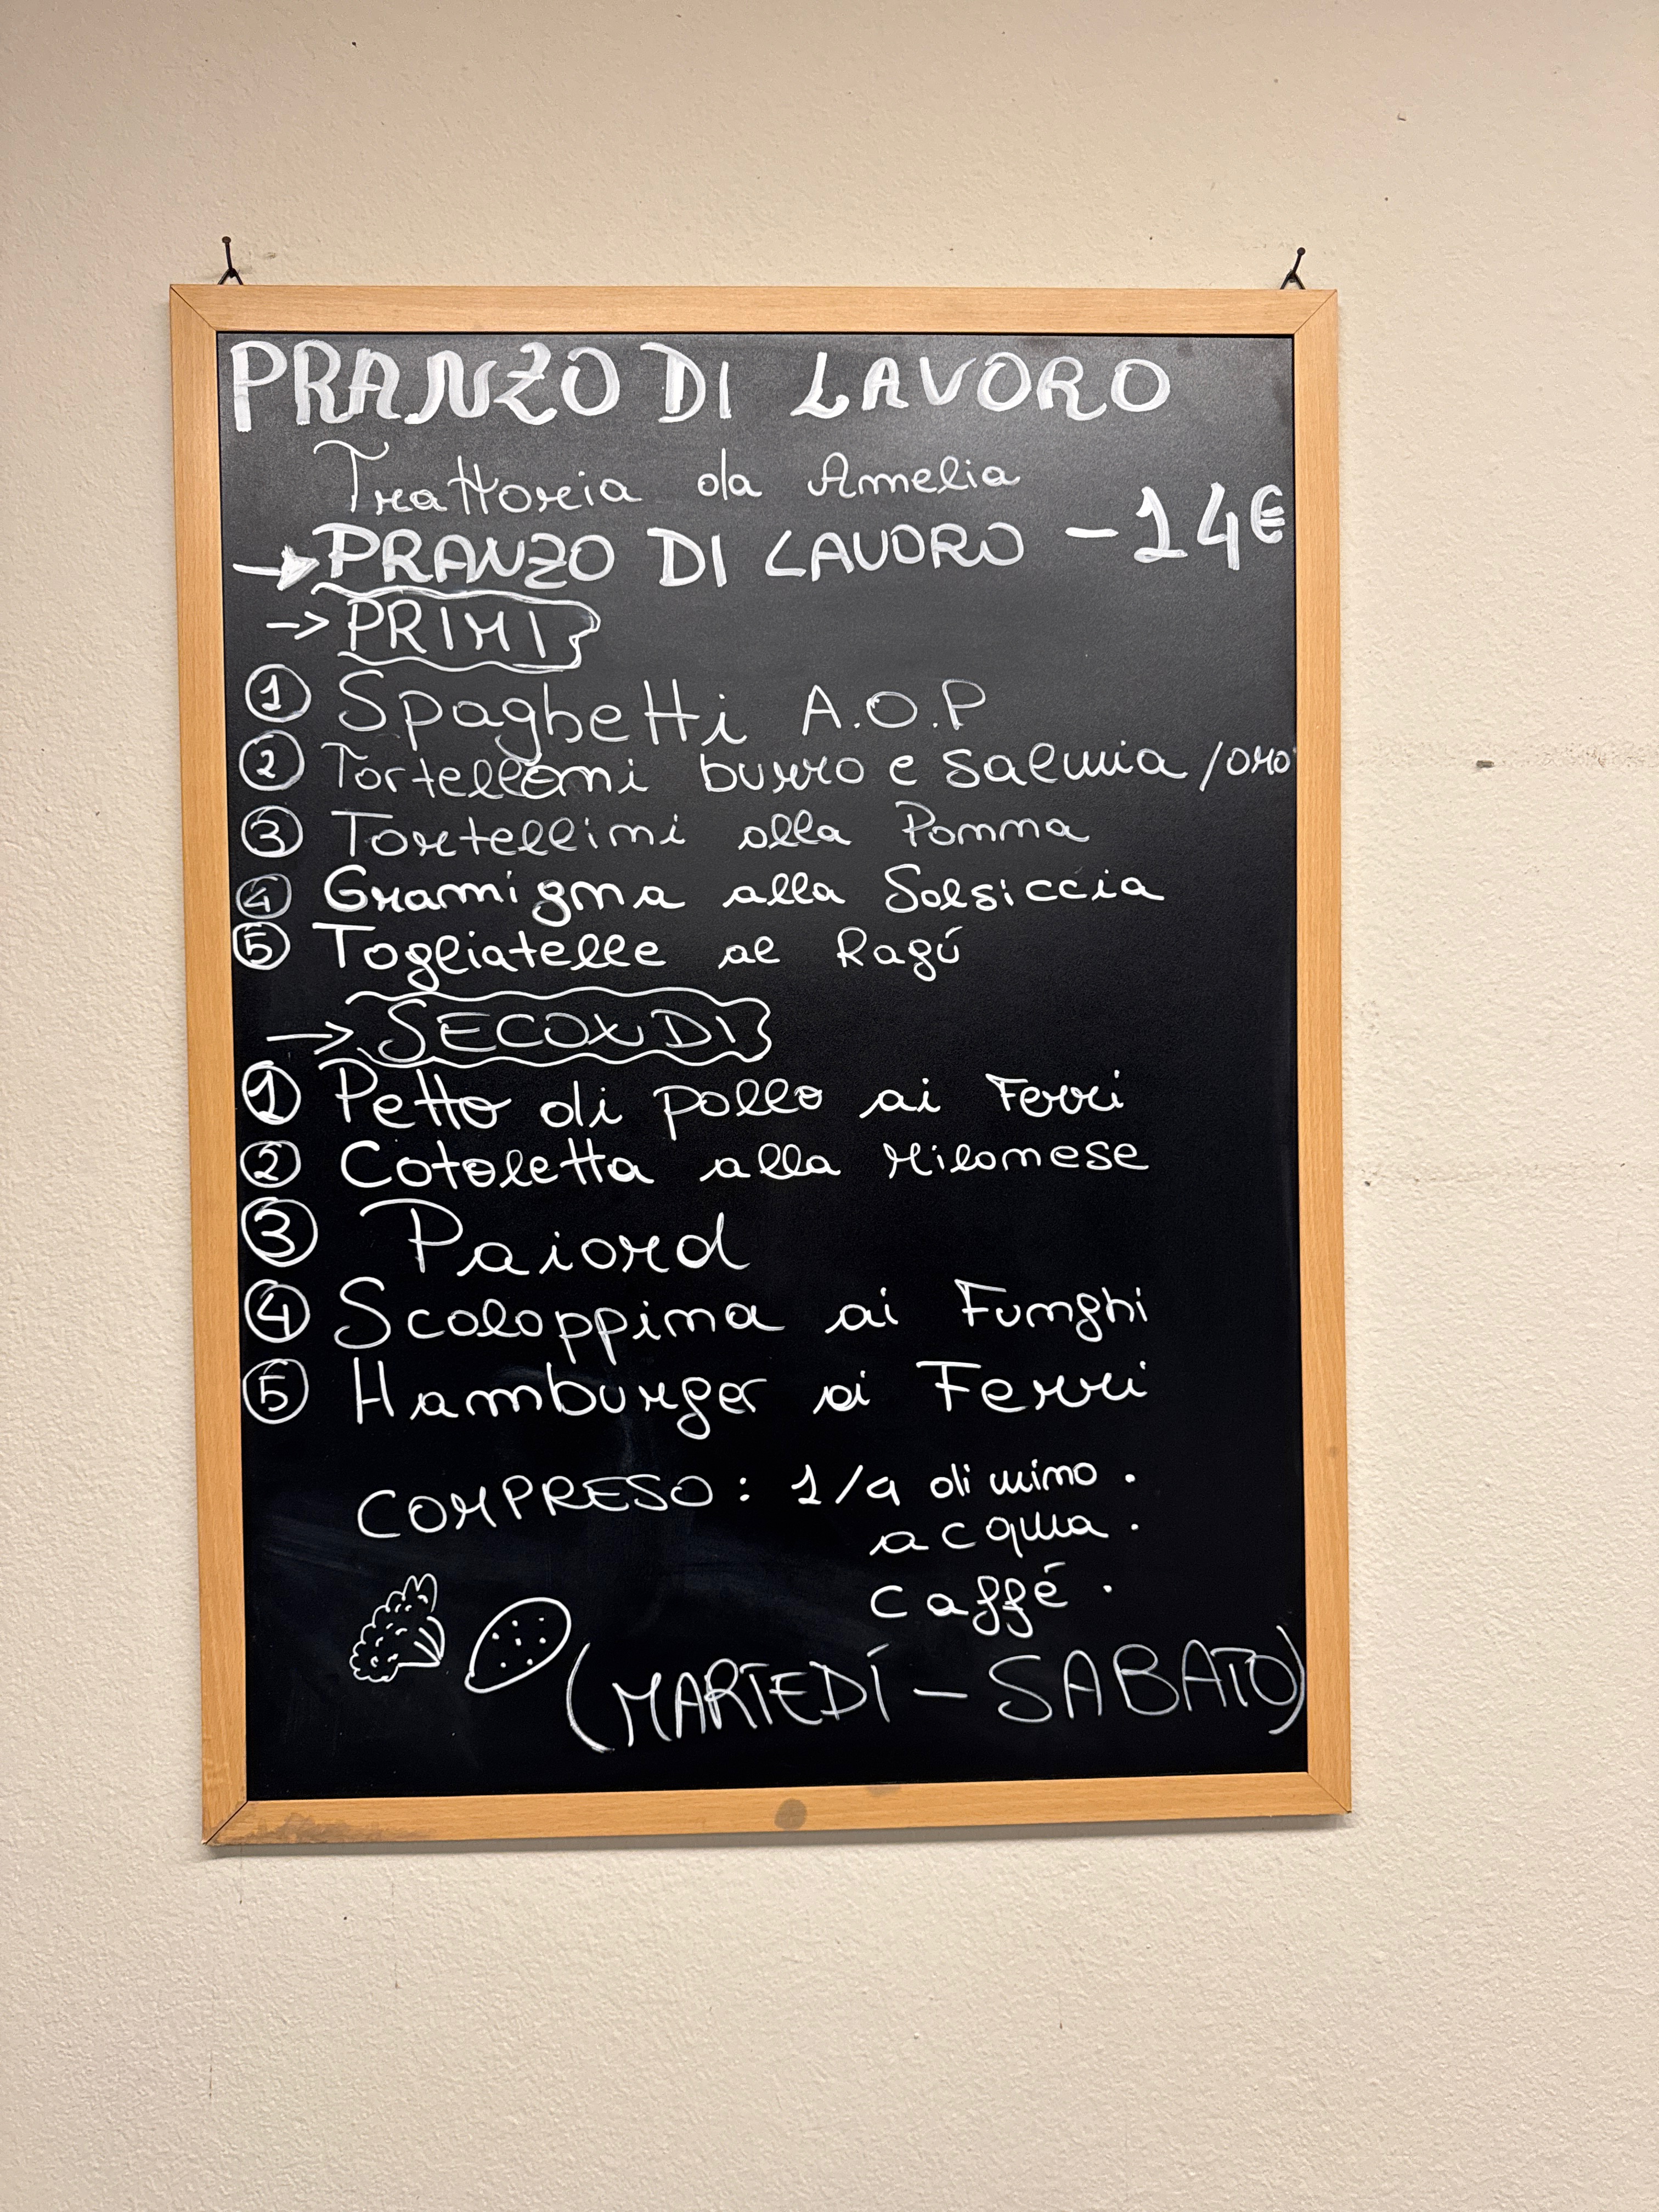 PRANZO DI LAVORO
Trattoria da Amelia
→ PRANZO DI LAVORO - 14€
→ PRIMI
1 Spaghetti A.O.P
2 Tortelloni burro e salvia / oro
3 Tortellini alla Panna
4 Gramigna alla Salsiccia
5 Tagliatelle al Ragú
→ SECONDI
1 Petto di pollo ai Ferri
2 Cotoletta alla Milanese
3 Paiard
4 Scaloppina ai Funghi
5 Hamburger ai Ferri
COMPRESO: 1/4 di vino.
acqua.
caffé.
(MARTEDÍ - SABATO)